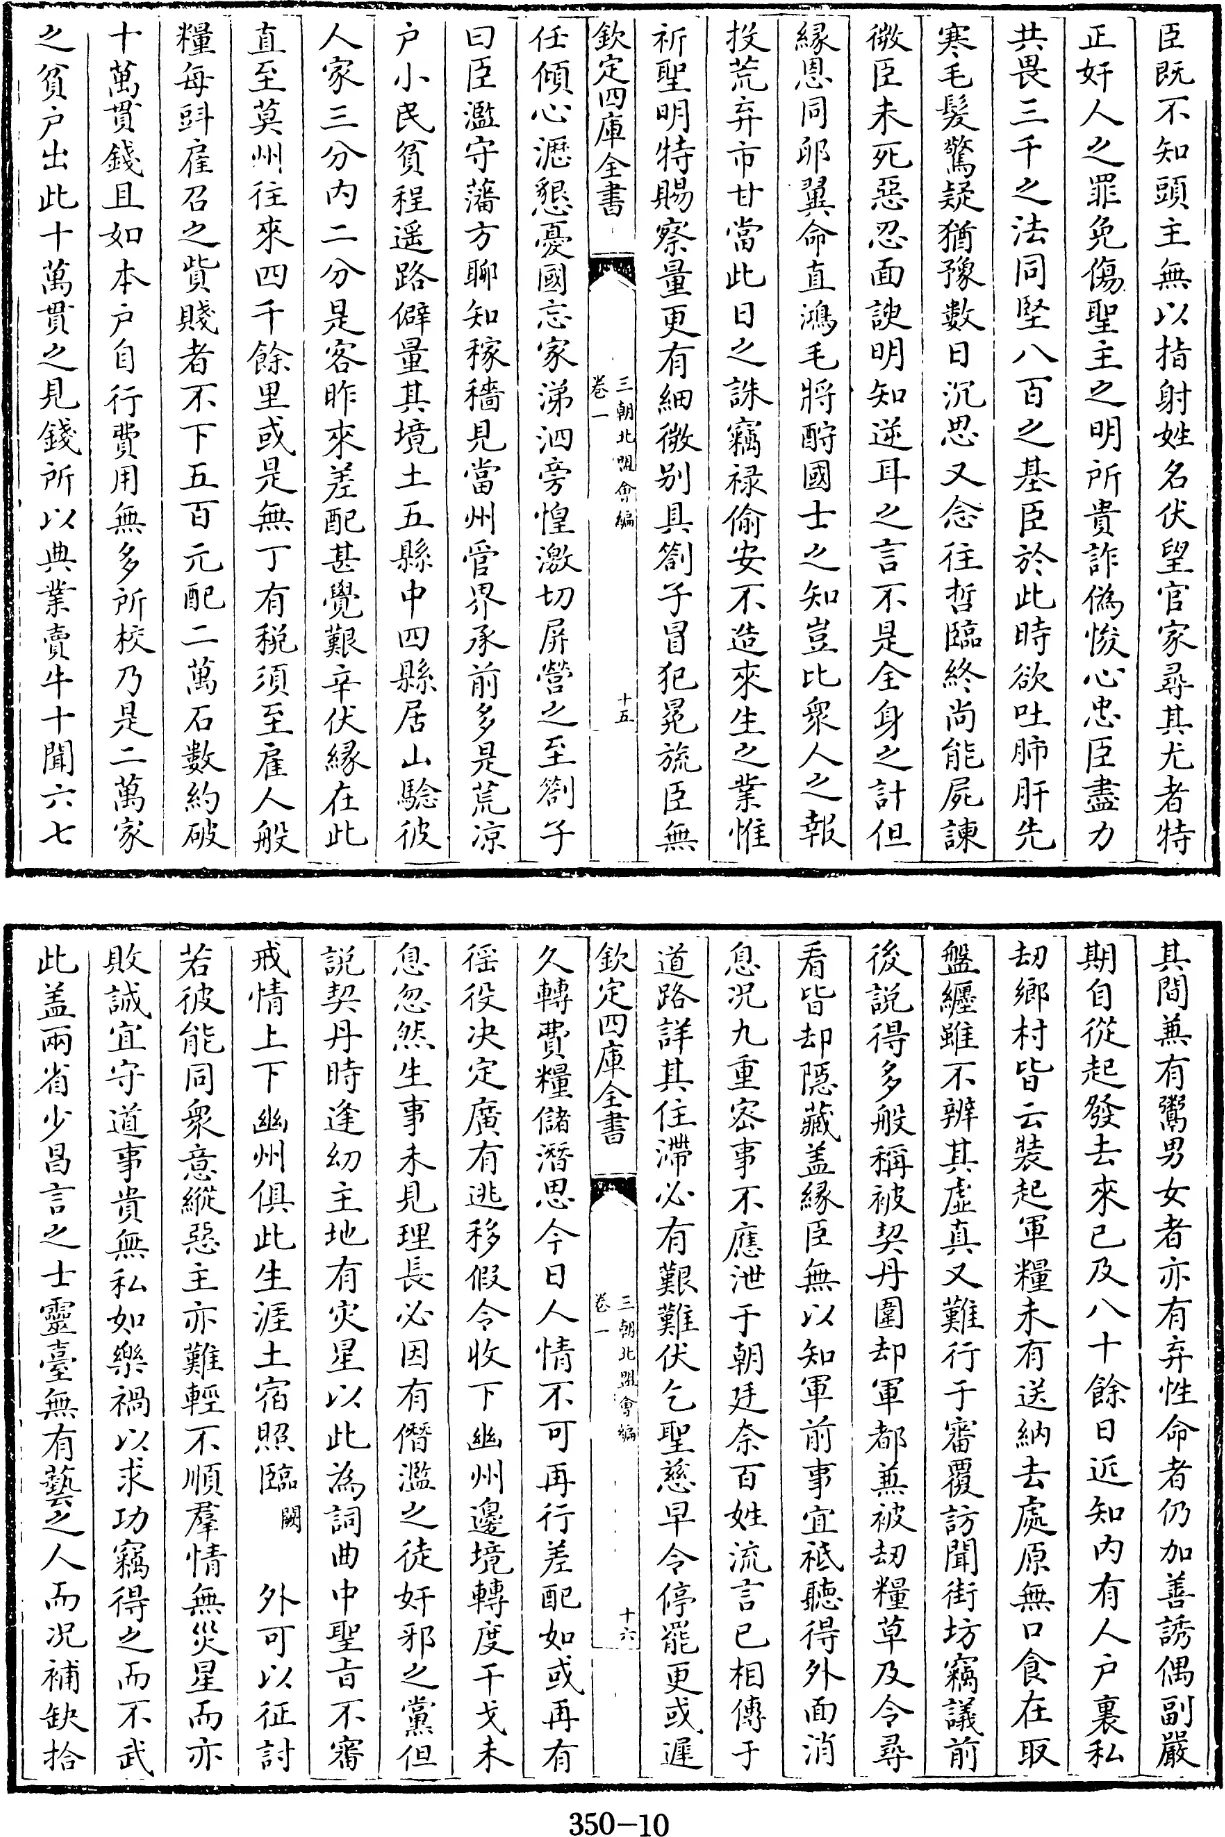 臣既不知頭主無以指射姓名伏望官家尋其尤者特
正奸人之罪免傷聖主之明所貴詐偽悛心忠臣盡力
共畏三千之法同堅八百之基臣於此時欲吐肺肝先
寒毛髮驚疑猶豫數日沉思又念往哲臨終尚能屍諫
微臣未死惡忍面諛明知逆耳之言不是全身之計但
緣恩同卵翼命直鴻毛將酧國士之知豈比衆人之報
投荒弃市甘當此日之誅竊禄偷安不造來生之業惟
祈聖明特賜察量更有細微别具劄子冒犯冕旒臣無
欽定四庫全書
三朝北盟會編
卷一
十五
任傾心瀝懇憂國忘家涕泗旁惶激切屏營之至劄子
曰臣濫守藩方聊知稼穡見當州管界承前多是荒凉
户小民貧程遥路僻量其境土五縣中四縣居山驗彼
人家三分内二分是客昨來差配甚覺艱辛伏緣在此
直至莫州往來四千餘里或是無丁有税須至雇人般
糧每㪷雇召之貲賤者不下五百元配二萬石數約破
十萬貫錢且如本户自行費用無多所校乃是二萬家
之貧户出此十萬貫之見錢所以典業賣牛十聞六七
其間兼有鬻男女者亦有弃性命者仍加善誘偶副嚴
期自從起發去來已及八十餘日近知内有人户裏私
刼鄉村皆云裝起軍糧未有送納去處原無口食在取
盤纏雖不辨其虚真又難行于審覆訪聞街坊竊議前
後説得多般稱被契丹圍却軍都兼被刼糧草及令尋
看皆却隱藏盖緣臣無以知軍前事宜祗聽得外面消
息况九重宻事不應泄于朝廷奈百姓流言已相傳于
道路詳其住滯必有艱難伏乞聖慈早令停罷更或遲
欽定四庫全書
三朝北盟會編
卷一
十六
久轉費糧儲潛思今日人情不可再行差配如或再有
徭役决定廣有逃移假令收下幽州邊境轉度干戈未
息忽然生事未見理長必因有僭濫之徒奸邪之黨但
説契丹時逢幼主地有灾星以此為詞曲中聖㫖不審
戎情上下幽州俱此生涯土宿照臨闕　外可以征討
若彼能同衆意縱惡主亦難輕不順羣情無災星而亦
敗誠宜守道事貴無私如樂禍以求功竊得之而不武
此盖兩省少昌言之士靈臺無有藝之人而况補缺拾
350-10